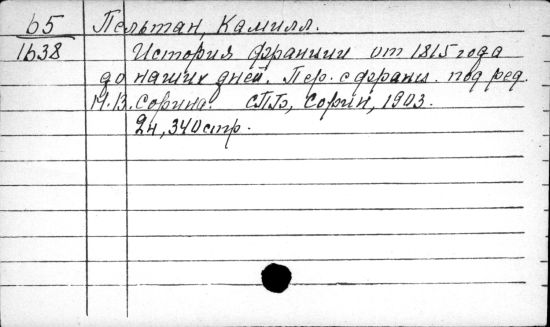 65 Пельтан, Камилл.
1638 История Франции от 1815 года
до наших дней. Пер. с франц. под ред.
М.В. Сорина. СПБ, Сорин, 1903.
2н, 340 стр.